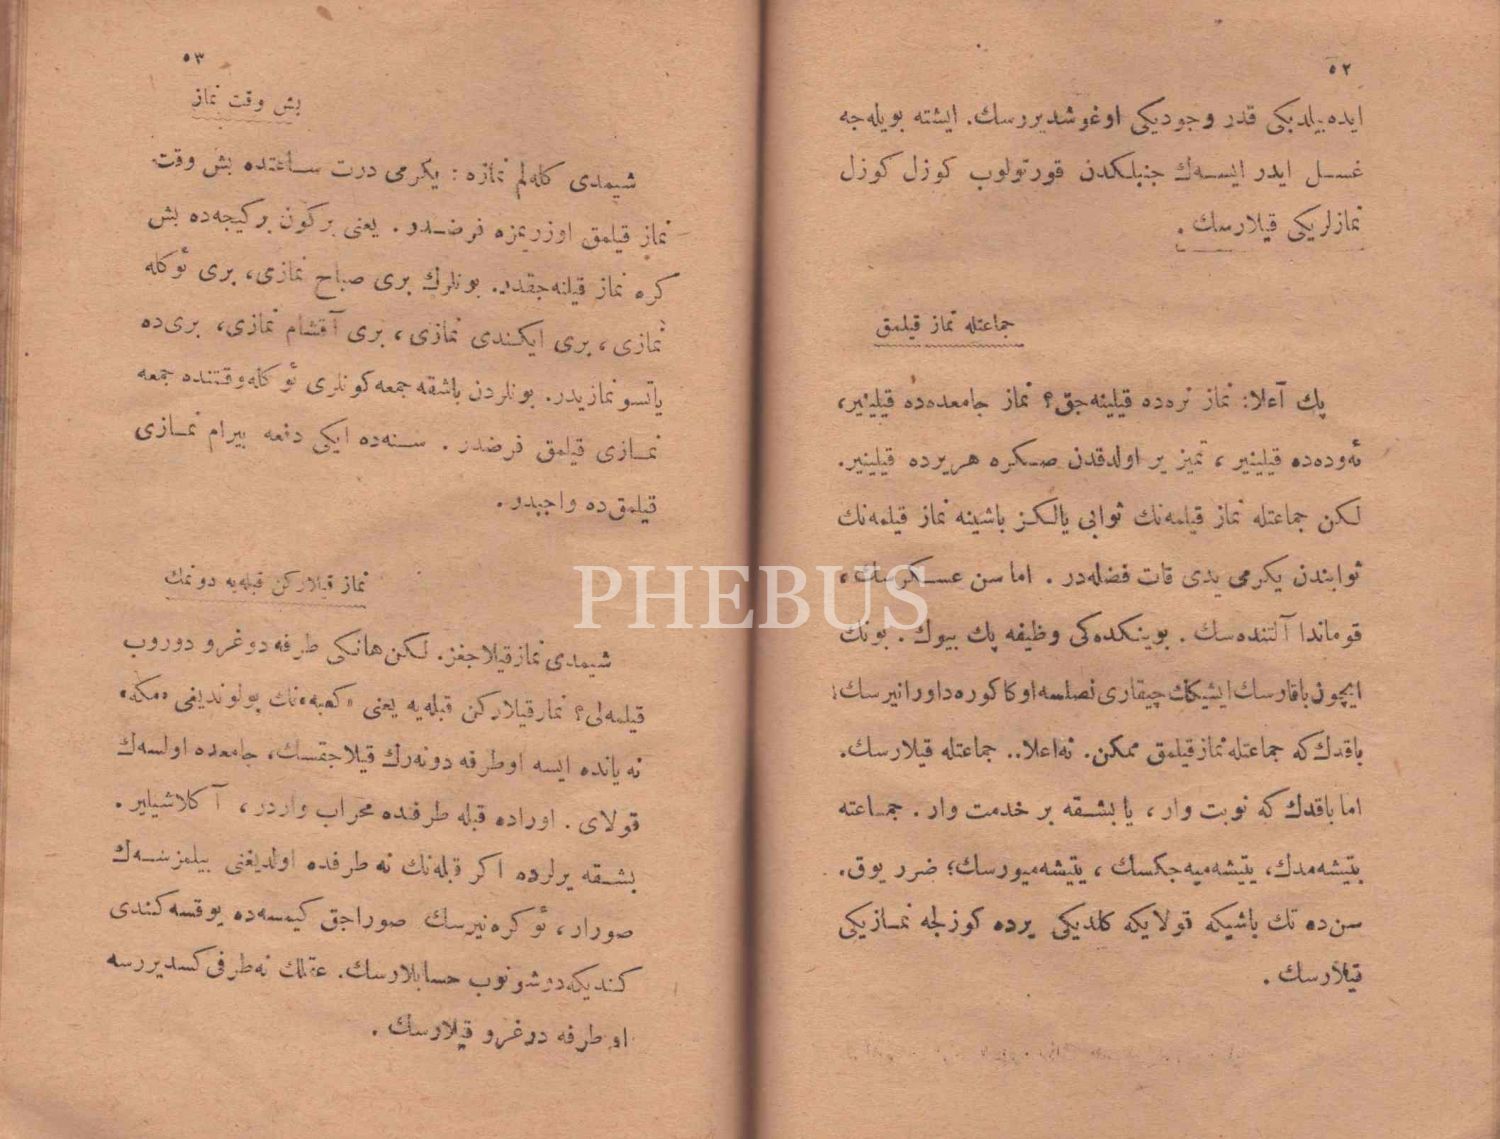 ٥٢
ايده بيلديكی قدر وجوديكی اوغوشديررسك. ايشته بويله‌جه
غسـل ايدر ايسه‌ك جنبلكدن قورتولوب كوزل كوزل
نمازلريكی قيلارسك.
جماعتله نماز قيلمق
پك آعلا: نماز نره‌ده قيلينه‌جق؟ نماز جامعده‌ده قيلينير،
ئه‌وده‌ده قيلينير، تميز ير اولدقدن صـكره هريرده قيلينير.
لـكن جماعتله نماز قيلمه‌نك ثوابی يالـكز باشينه نماز قيلمه‌نك
ثوابندن يكرمی يدی قات فضله‌در. اما سن عسـكرسك،
قوماندا آلتنده‌سك. بوينكده‌كی وظيفه پك بيوك. بونك
ايچون باقارسك ايشيكك چيقاری نصلسه اوكا كوره داورانيرسك؛
باقدك كه جماعتله نماز قيلمق ممكن. نه‌اعلا.. جماعتله قيلارسك.
اما باقدك كه نوبت وار، يا بشـقه بر خدمت وار. جماعته
يتيشه‌مدك، يتيشه‌ميه‌جكسك، يتيشه‌ميورسك؛ ضرر يوق.
سن‌ده تك باشيكه قولايكه كلديكی يرده كوزلجه نمـازيكی
قيلارسك.
PHEBUS
٥٣
بش وقت نماز
شيمدی كله‌لم نمازه: يكرمی درت سـاعتده بش وقت
نماز قيلمق اوزريمزه فرضـدر. يعنی بركون بركيجه‌ده بش
كره نماز قيلنه‌جقدر. بونلرك بری صباح نمازی، بری ئوكله
نمازی، بری ايكـندی نمازی، بری آقشام نمازی، بری‌ده
ياتسو نمازيدر. بونلردن باشقه جمعه‌كونلری ئوكله‌وقتنده جمعه
نمـازی قيلمق فرضدر. سـنه‌ده ايكی دفعه بيرام نمـازی
قيلمق‌ده واجبدر.
نماز قيلاركن قبله‌يه دونمك
شيمدی نماز قيلاجغز. لـكن هانكی طرفه دوغرو دوروب
قيلمه‌لی؟ نماز قيلاركن قبله‌يه يعنی «كعبه»نك بولونديغی «مكه»
نه يانده ايسه اوطرفه دونه‌رك قيلاجقسك، جامعده اولسه‌ك
قولای. اوراده قبله طرفنده محراب واردر، آكلاشيلير.
بشـقه يرلرده اكر قبله‌نك نه طرفده اولديغنی بيلمزسـه‌ك
صورار، ئوكره‌نيرسك صوراجق كيمسه‌ده يوقسه كندی
كنديكه دوشونوب حسابلارسك. عقلك نه‌طرفی كسديررسه
او طرفه دوغرو قيلارسك.